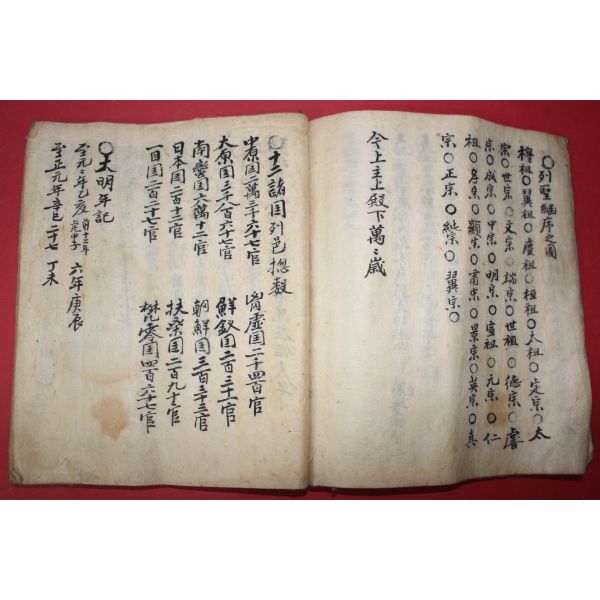 ○列聖繼序之圖
穆祖○翼祖○度祖○桓祖○太祖○定宗○太
宗○世宗○文宗○端宗○世祖○德宗○睿
宗○成宗○中宗○明宗○宣祖○元宗○仁
祖○孝宗○顯宗○肅宗○景宗○英宗○真
宗○正宗○純宗○翼宗○
今上主上殿下萬〻歲
○十二諸国列邑摠数
中原国一萬三千六十七官 胷虛国二千四百官
大原国三千八百六十七官 鮮釵国二百三十一官
南蠻国六萬十二官 朝鮮国三百三十三官
日本国二百十二官 扶桑国二百九十三官
一目国二百二十七官 梵零国四百六十七官
○大明年記
至元二年乙亥 六年庚辰
至正元年辛巳 二十七 丁未